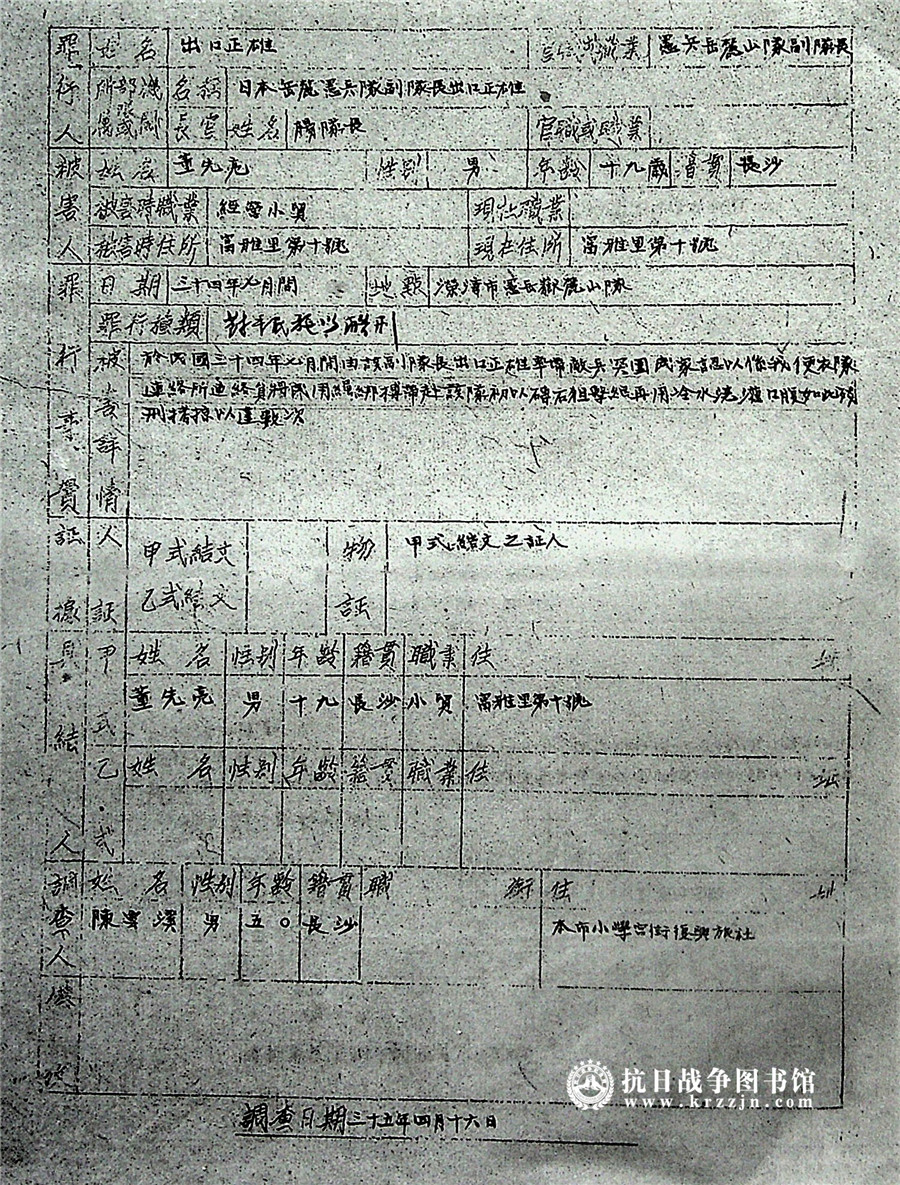 罪行人 姓名 出口正雄 官位或職業 憲兵岳麓山隊副隊長
所部機 名稱 日本岳麓憲兵隊副隊長出口正雄
長官 姓名 勝隊長 官職或職業
被害人 姓名 董先亮 性別 男 年齡 十九歲 籍貫 長沙
被害時職業 經營小貿 現在職業
被害時住所 富雅里第十號 現在住所 富雅里第十號
罪行事實 日期 三十四年七月間 地點 市憲兵嶽麓山隊
罪行種類 對平民施以酷刑
被害詳情 於民國三十四年七月間由該副隊長出口正雄率帶敵兵突圍民家認以作我便衣隊
連絡所 將民用繩綁縛帶赴該隊初以磚石 再用冷水澆灌口腹如此
刑 以達數次
証據 人証 甲式結文 乙式結文 物証 甲式結文之証人
具結人 甲式 姓名 性別 年齡 籍貫 職業 住址
董先亮 男 十九 長沙 小貿 富雅里第十號
乙式 姓名 性別 年齡 籍貫 職業 住址
調查人 姓名 性別 年數 籍貫 職銜 住址
陳雲溪 男 五〇 長沙 本市小學宮街復興旅社
備
調查日期三十五年四月十六日
抗日战争图书馆
www.krzzjn.com